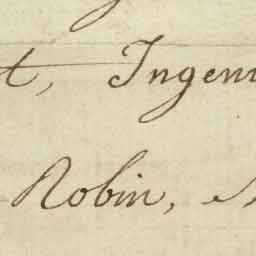 t, Ingeni
Robin,